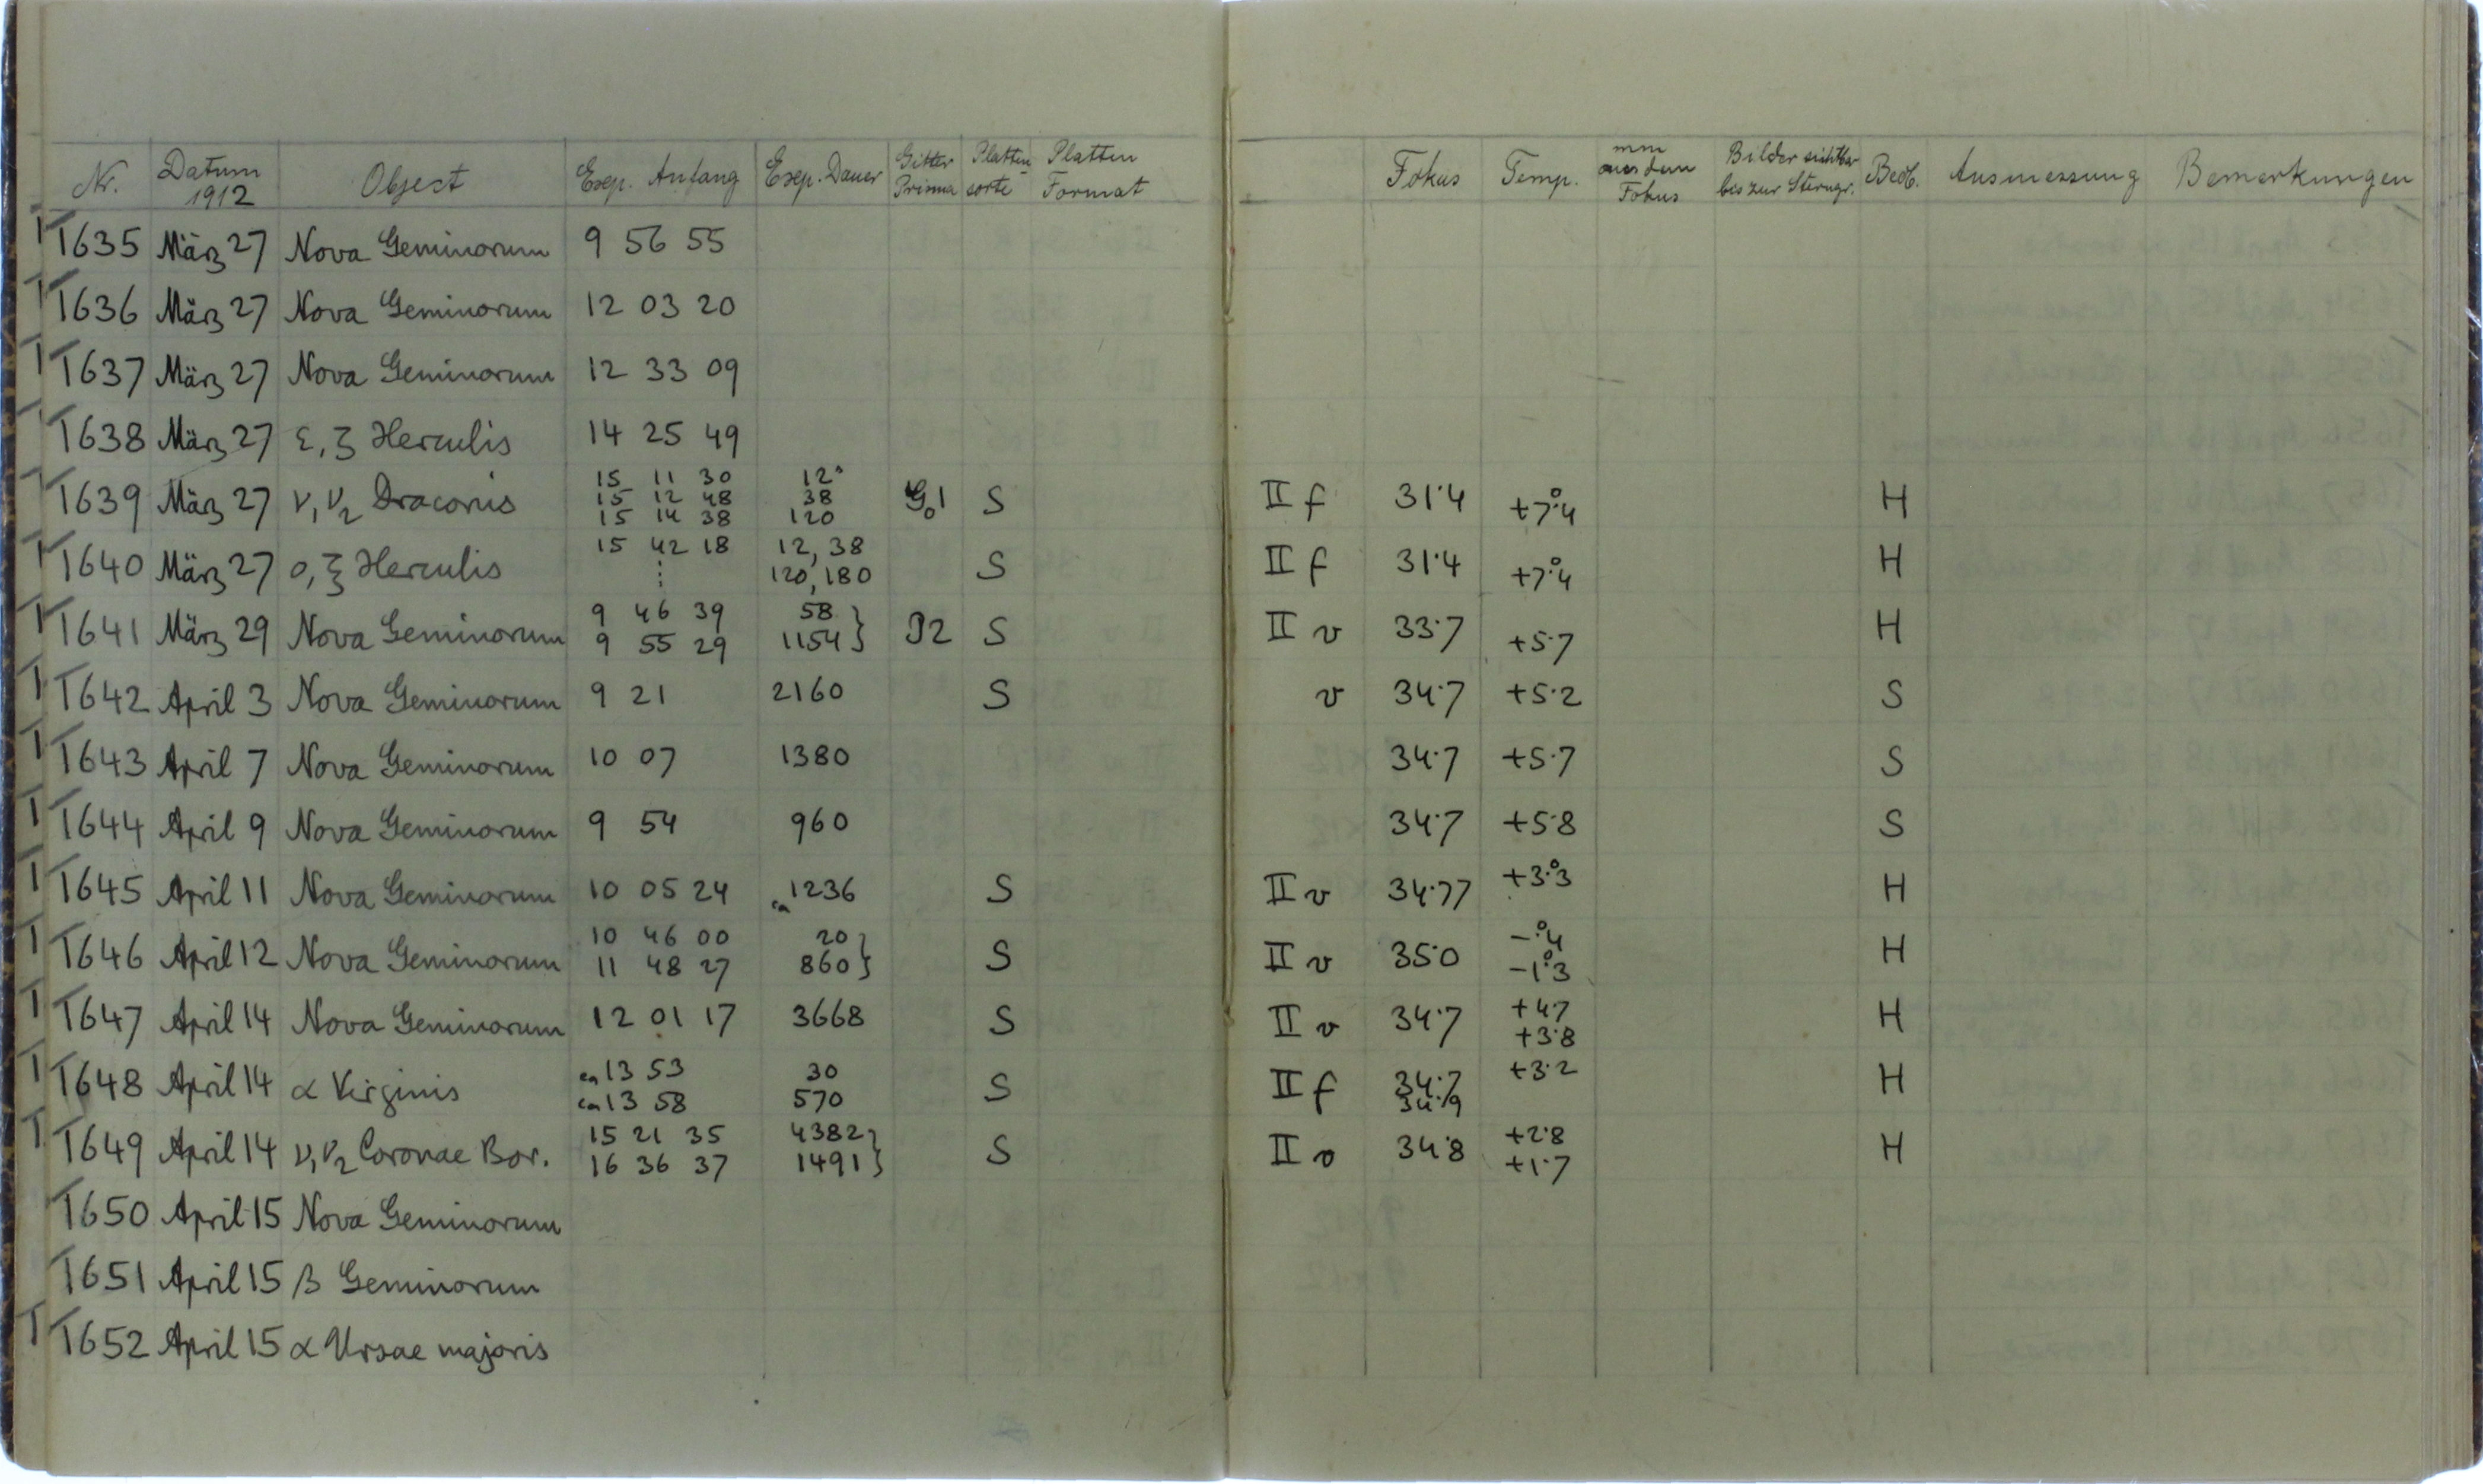 Nr. Datum 1912 Object Exp. Anfang Exp. Dauer Gitter Prisma Platten-sorte Platten Format Fokus Temp. mm aus dem Fokus Bilder sichtbar bis zur Sterngr. Beob. Ausmessung Bemerkungen
T635 März 27 Nova Geminorum 9 56 55
T636 März 27 Nova Geminorum 12 03 20
T637 März 27 Nova Geminorum 12 33 09
T638 März 27 ε, ζ Herculis 14 25 49
T639 März 27 ν₁ν₂ Draconis 15 11 30 12ˢ G₀1 S II f 31.4 +7°.4 H
15 12 48 38
15 14 38 120
T640 März 27 ο, ξ Herculis 15 42 18 12, 38 S II f 31.4 +7°.4 H
⋮ 120, 180
T641 März 29 Nova Geminorum 9 46 39 58 } P2 S II v 33.7 +5.7 H
9 55 29 1154 }
T642 April 3 Nova Geminorum 9 21 2160 S v 34.7 +5.2 S
T643 April 7 Nova Geminorum 10 07 1380 34.7 +5.7 S
T644 April 9 Nova Geminorum 9 54 960 34.7 +5.8 S
T645 April 11 Nova Geminorum 10 05 24 ca 1236 S II v 34.77 +3°.3 H
T646 April 12 Nova Geminorum 10 46 00 20 } S II v 35.0 -°.4 H
11 48 27 860 } -1°.3
T647 April 14 Nova Geminorum 12 01 17 3668 S II v 34.7 +4.7 H
+3.8
T648 April 14 α Virginis ca 13 53 30 S II f 34.7 +3.2 H
ca 13 58 570 34.9
T649 April 14 ν₁ν₂ Coronae Bor. 15 21 35 4382 } S II v 34.8 +2.8 H
16 36 37 1491 } +1.7
T650 April 15 Nova Geminorum
T651 April 15 β Geminorum
T652 April 15 α Ursae majoris